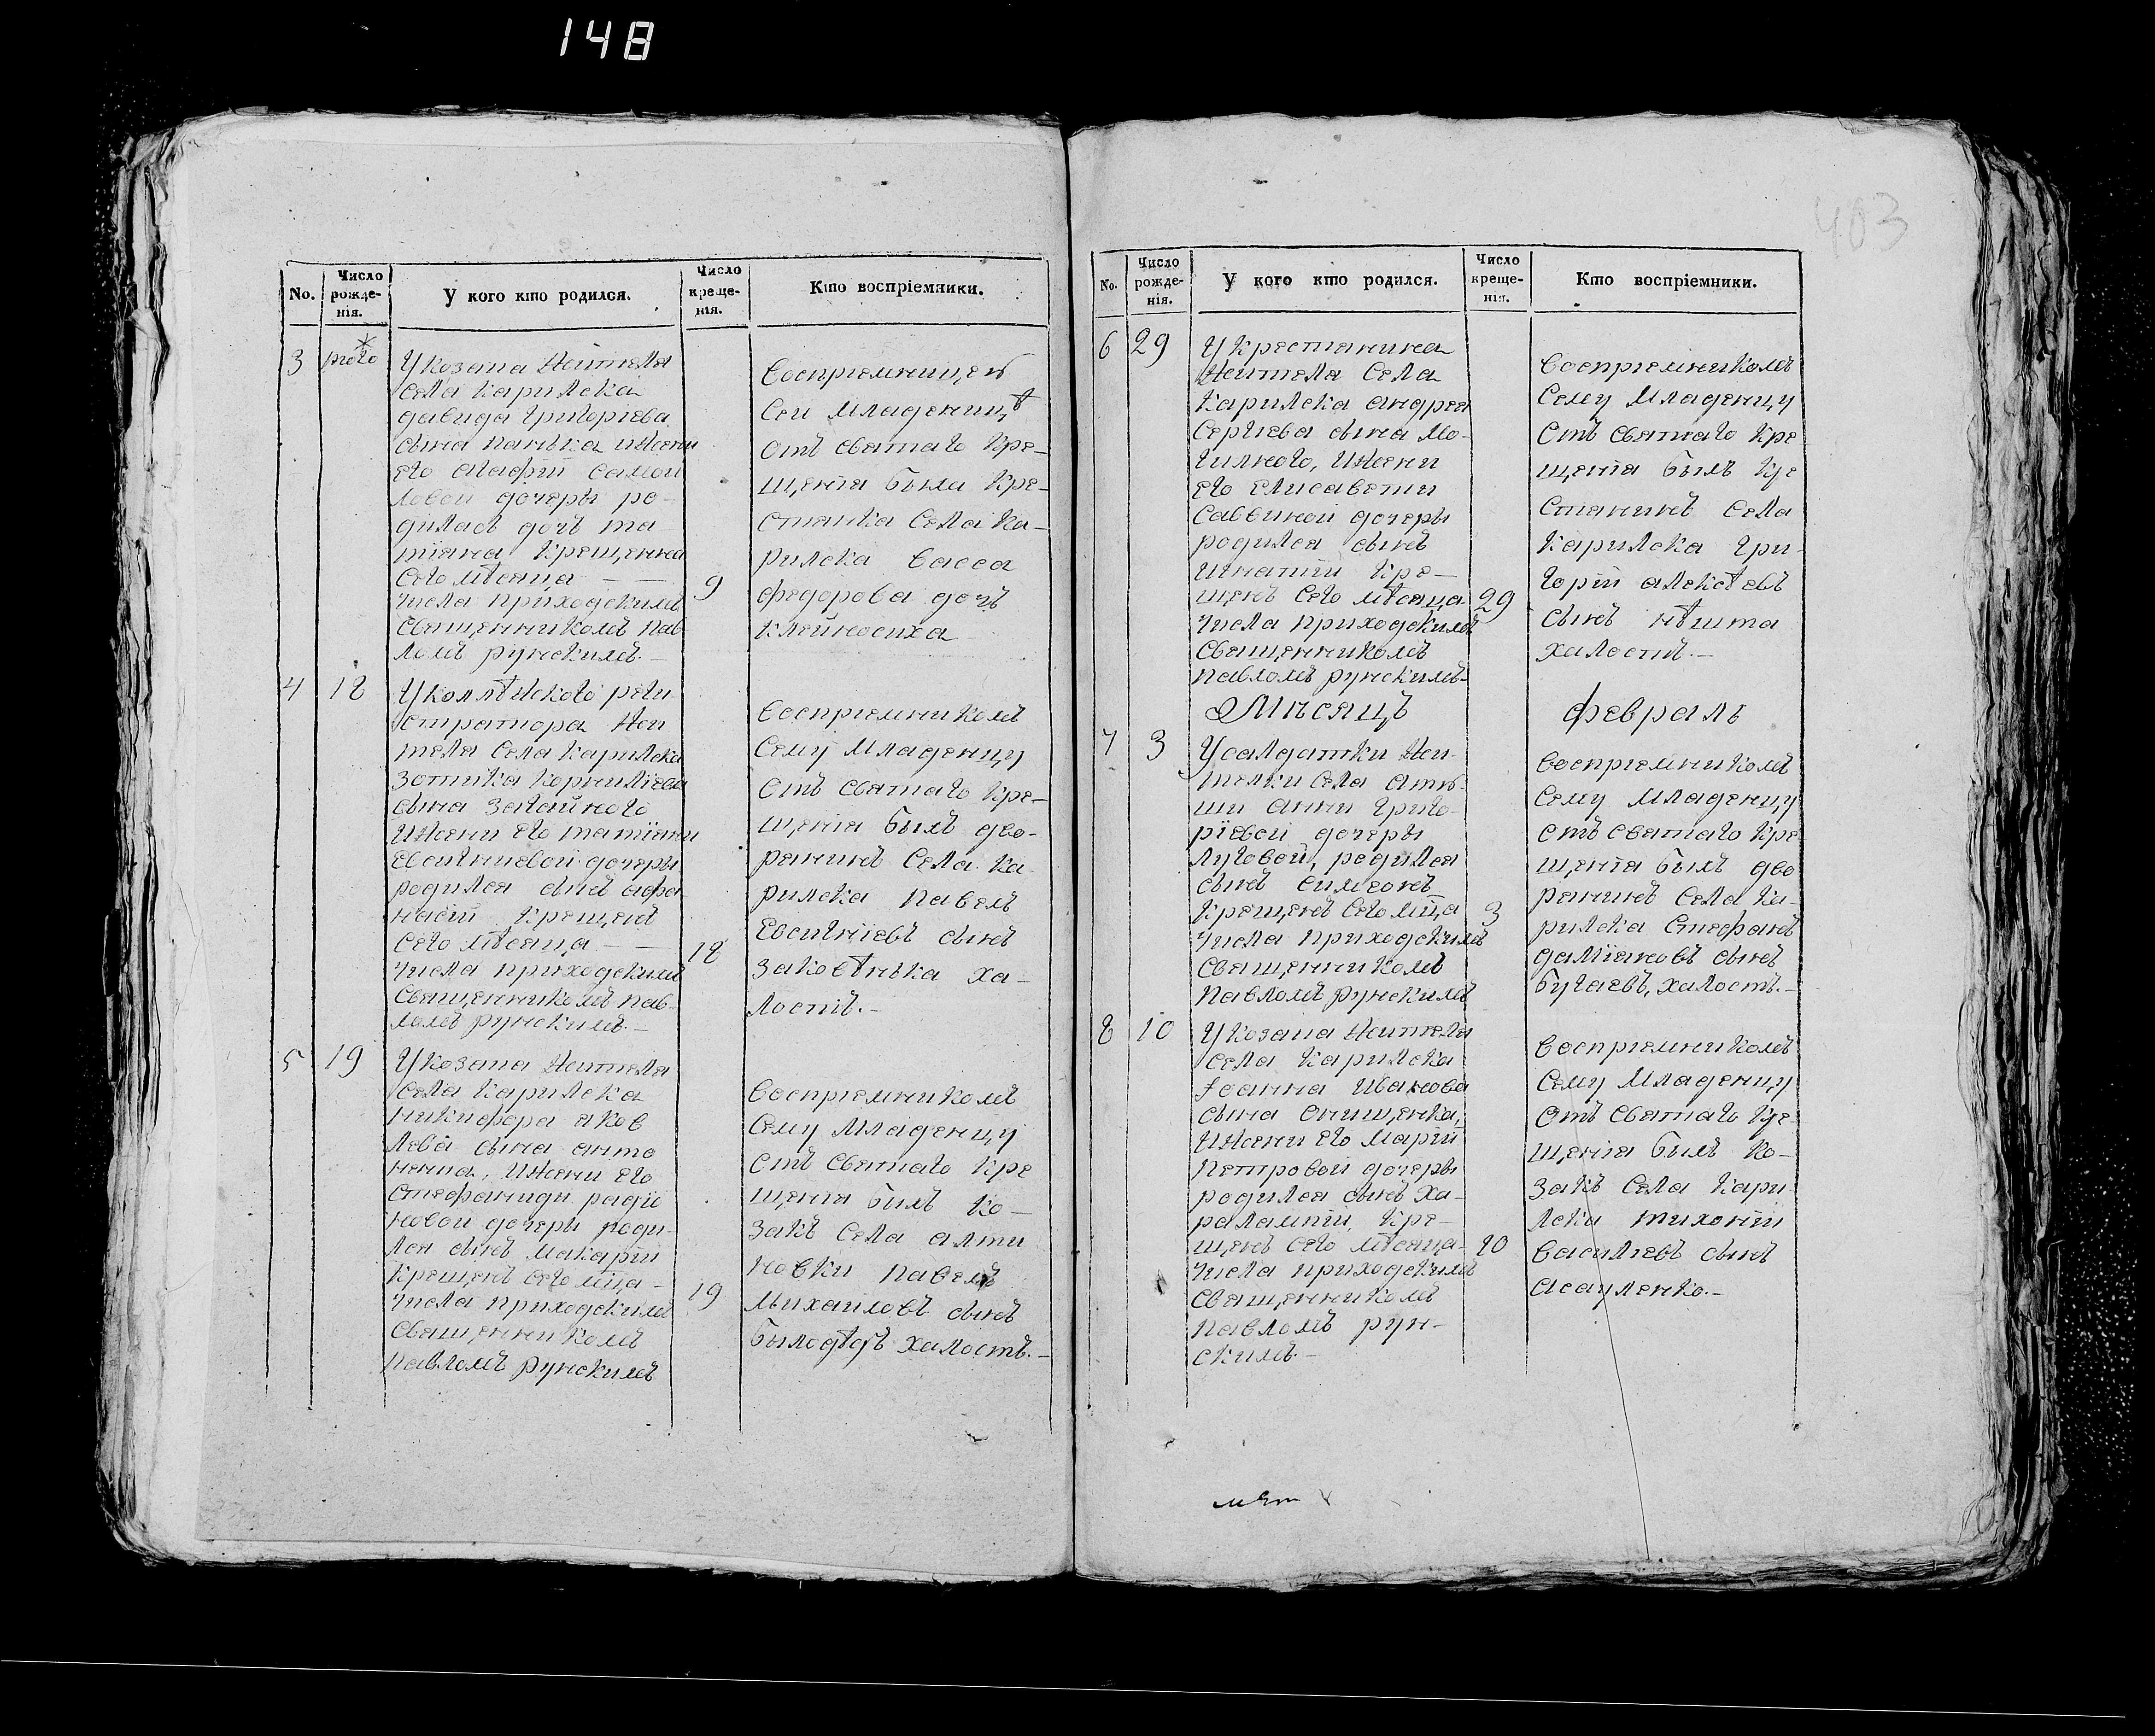 148
403
No.
Число рожде-нія.
У кого кто родился.
Число креще-нія.
Кто воспріемники.
3
У козака жителя
села Карилска
давида григориева
сына панька ижени
его агафіи самои
ловои дочеры ро-
дилась дочь та
тіана крещенна
сего мѣсяца — —
9
числа приходскимъ
священникомъ пав
ломъ рунскимъ. —
воспріемницею
сеи младеницѣ
отъ святаго кре-
щенія была кре-
стянка села ка-
рилска васса
федорова дочь
клейносиха
4
18
У коллѣжского реги
стратора жи
теля села карилска
зотика корнилѣева
сына
ижени его татіяни
евсигниевои дочеры
родился сынъ афа
насіи крещенъ
сего мѣсяца — —
18
числа приходскимъ
священникомъ пав-
ломъ рунскимъ. —
воспріемникомъ
сему младенцу
отъ святаго кре-
щенія былъ дво-
ренинъ села ка-
рилска павелъ
евсигніевъ сынъ
заковѣнька ха-
лостъ. —
5
19
У козака жителя
села карилска
никифора яков
лева сына анто
ненка, ижени его
стефаниди радіо
новои дочеры роди-
лся сынъ макаріи
крещенъ сего мца —
19
числа приходскимъ
священникомъ
павломъ рунскимъ
воспріемникомъ
сему младенцу
отъ святаго кре
щенія былъ ко-
закъ села алти
новки павелъ
михаиловъ сынъ
былодѣдъ халостъ. —
No.
Число рожде-нія.
У кого кто родился.
Число креще-нія.
Кто воспріемники.
6
29
У крестянина
жителя села
карилска андрея
сергіева сына мо-
гилного, ижени
его елисавети
саввиной дочеры
родился сынъ
игнатіи кре-
щенъ сего мѣсяца
29
числа приходскимъ
священникомъ
павломъ рунскимъ-
воспріемникомъ
сему младенцу
отъ святаго кре
щенія былъ кре
стянинъ села
карилска гри-
горіи алексѣевъ
сынъ нѣшта
халостъ. —
Мѣсяцъ
февраль
7
3
У салдатки жи-
телки села атю-
ши анни григо-
ріевои дочеры
луговои, родился
сынъ симеонъ
крещенъ сего мца
3
числа приходскимъ
священникомъ
павломъ рунскимъ
воспріемникомъ
сему младенцу
отъ святаго кре
щенія былъ дво
ренинъ села ка-
рилска стефанъ
даміановъ сынъ
бугаевъ, халостъ. —
8
10
У козака жителя
села карилска
іоанна иванова
сына онищенка,
ижени его маріи
петровои дочеры
родился сынъ ха-
ралампіи, кре-
щенъ сего мѣсяца-
10
числа приходскимъ
священникомъ
павломъ рун-
скимъ. —
воспріемникомъ
сему младенцу
отъ святаго кре
щенія былъ ко-
закъ села кари
лска тихоніи
василіевъ сынъ
асауленко. —